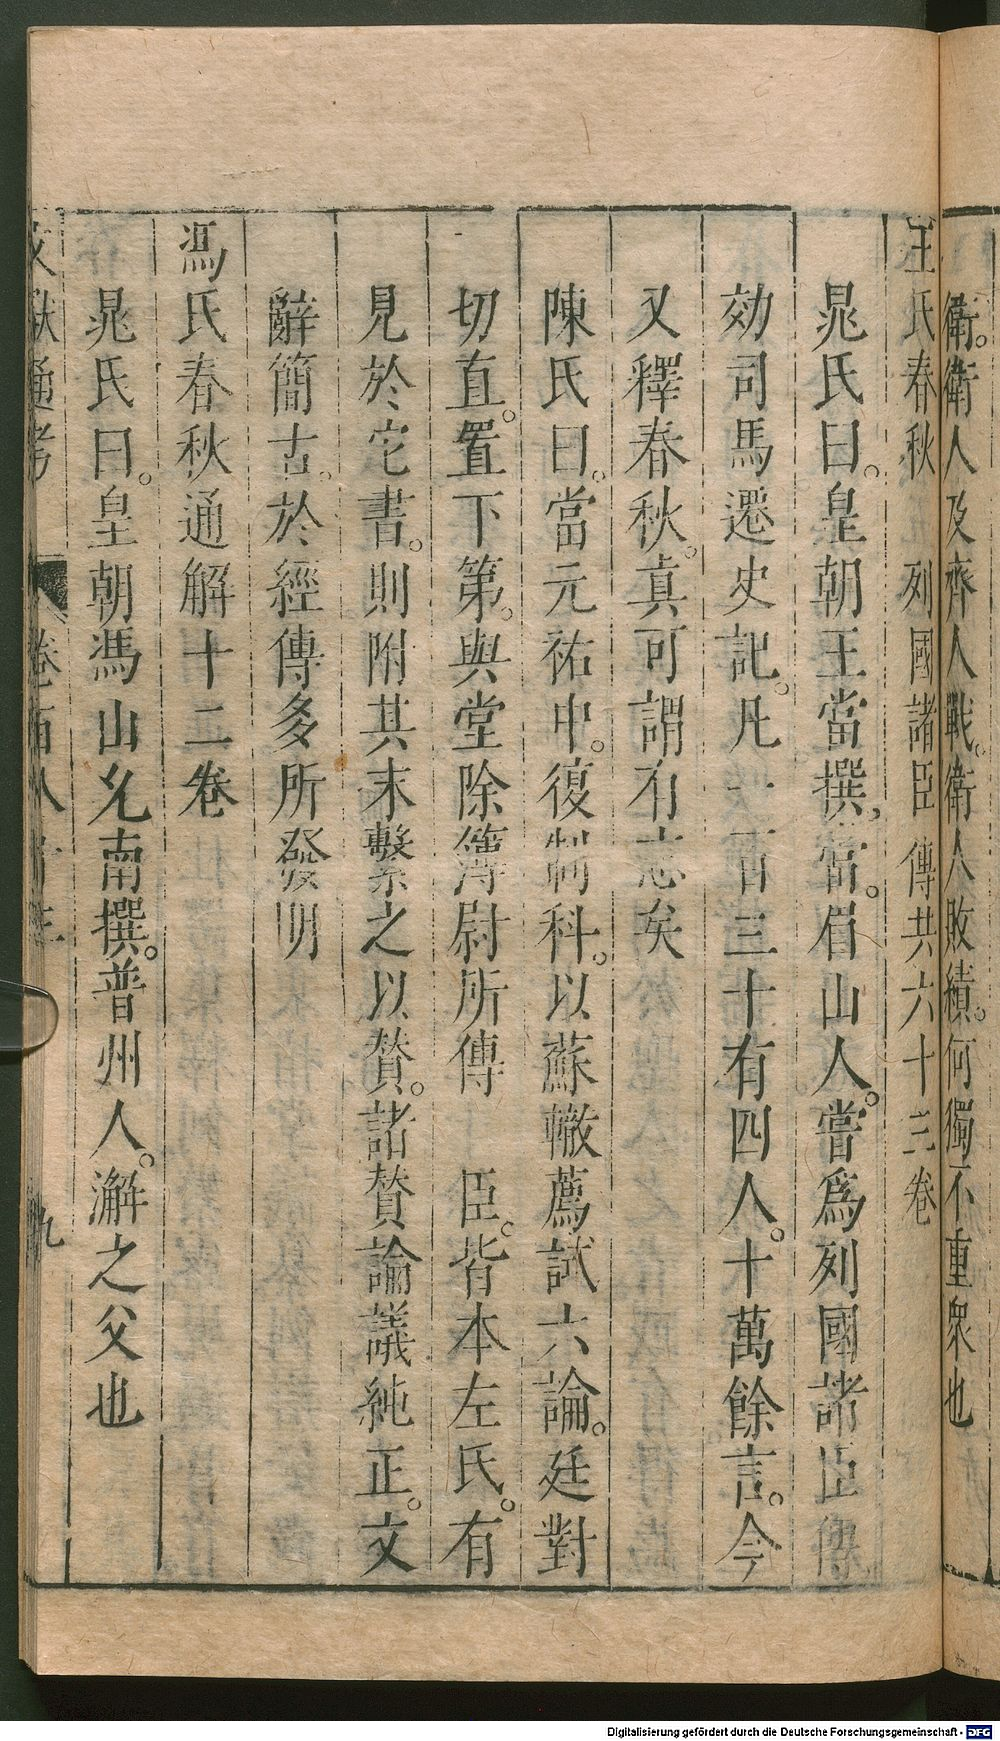 衛。衛人及齊人戰。衛人敗績。何獨不重衆也
王氏春秋 列國諸臣傳共六十三卷
晁氏曰。皇朝王當撰，當。眉山人。嘗爲列國諸臣傳
効司馬遷史記。凡一百三十有四人。十萬餘言。今
又釋春秋。真可謂有志矣
陳氏曰。當元祐中。復制科。以蘇轍薦試六論。廷對
切直。置下第。與堂除簿尉所傳 臣。皆本左氏。有
見於它書。則附其末繫之以贊。諸贊論議純正。文
辭簡古。於經傳多所發明
馮氏春秋通解十二卷
晁氏曰。皇朝馮山允南撰。普州人。澥之父也
文獻通考 卷百八十三 九
Digitalisierung gefördert durch die Deutsche Forschungsgemeinschaft - DFG